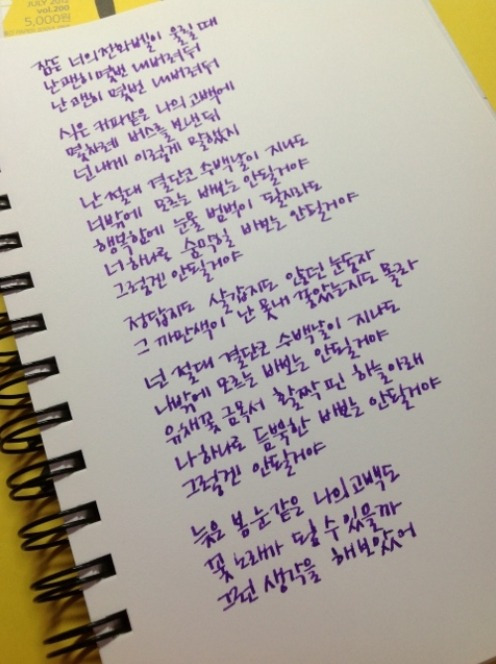 JULY 2012
vol.200
5,000원
잠든 너의 전화벨이 울릴 때
난 괜히 몇번 내버려둬
난 괜히 몇번 내버려둬
식은 커피같은 나의 고백에
몇차례 버스를 보낸 뒤
넌 내게 이렇게 말했지
난 절대 결단코 수백날이 지나도
너밖에 모르는 바보는 안될거야
행복함에 눈물 범벅이 될지라도
너 하나로 숨막힐 바보는 안될거야
그렇겐 안될거야
정답지도 살갑지도 않던 눈동자
그 까만색이 난 못내 좋았는지도 몰라
넌 절대 결단코 수백날이 지나도
나밖에 모르는 바보는 안될거야
유채꽃 금목서 활짝 핀 하늘아래
나 하나로 듬뿍한 바보는 안될거야
그렇겐 안될거야
늦은 봄 눈 같은 나의 고백도
꽃노래가 될 수 있을까
그런 생각을 해보았어